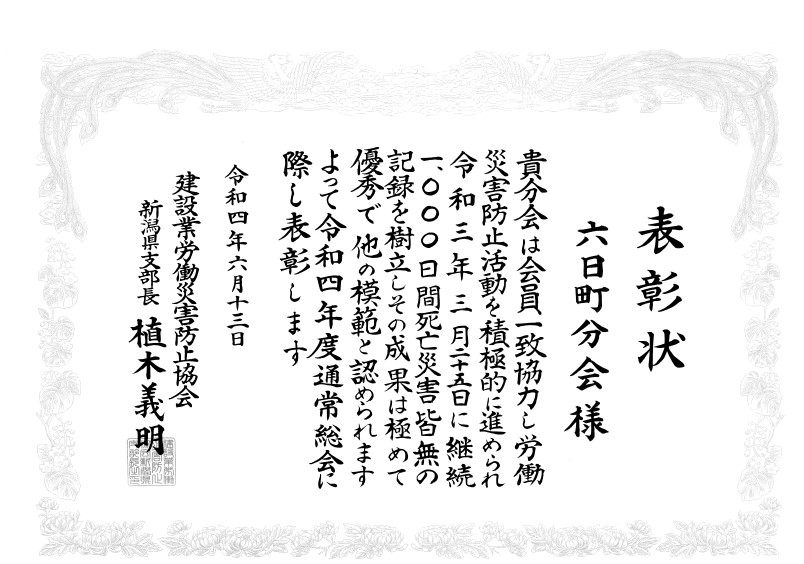 表彰状
六日町分会様
貴分会は会員一致協力し労働
災害防止活動を積極的に進められ
令和三年三月二十五日に継続
一、〇〇〇日間死亡災害皆無の
記録を樹立しその成果は極めて
優秀で他の模範と認められます
よって令和四年度通常総会に
際し表彰します
令和四年六月十三日
建設業労働災害防止協会
新潟県支部長 植木義明